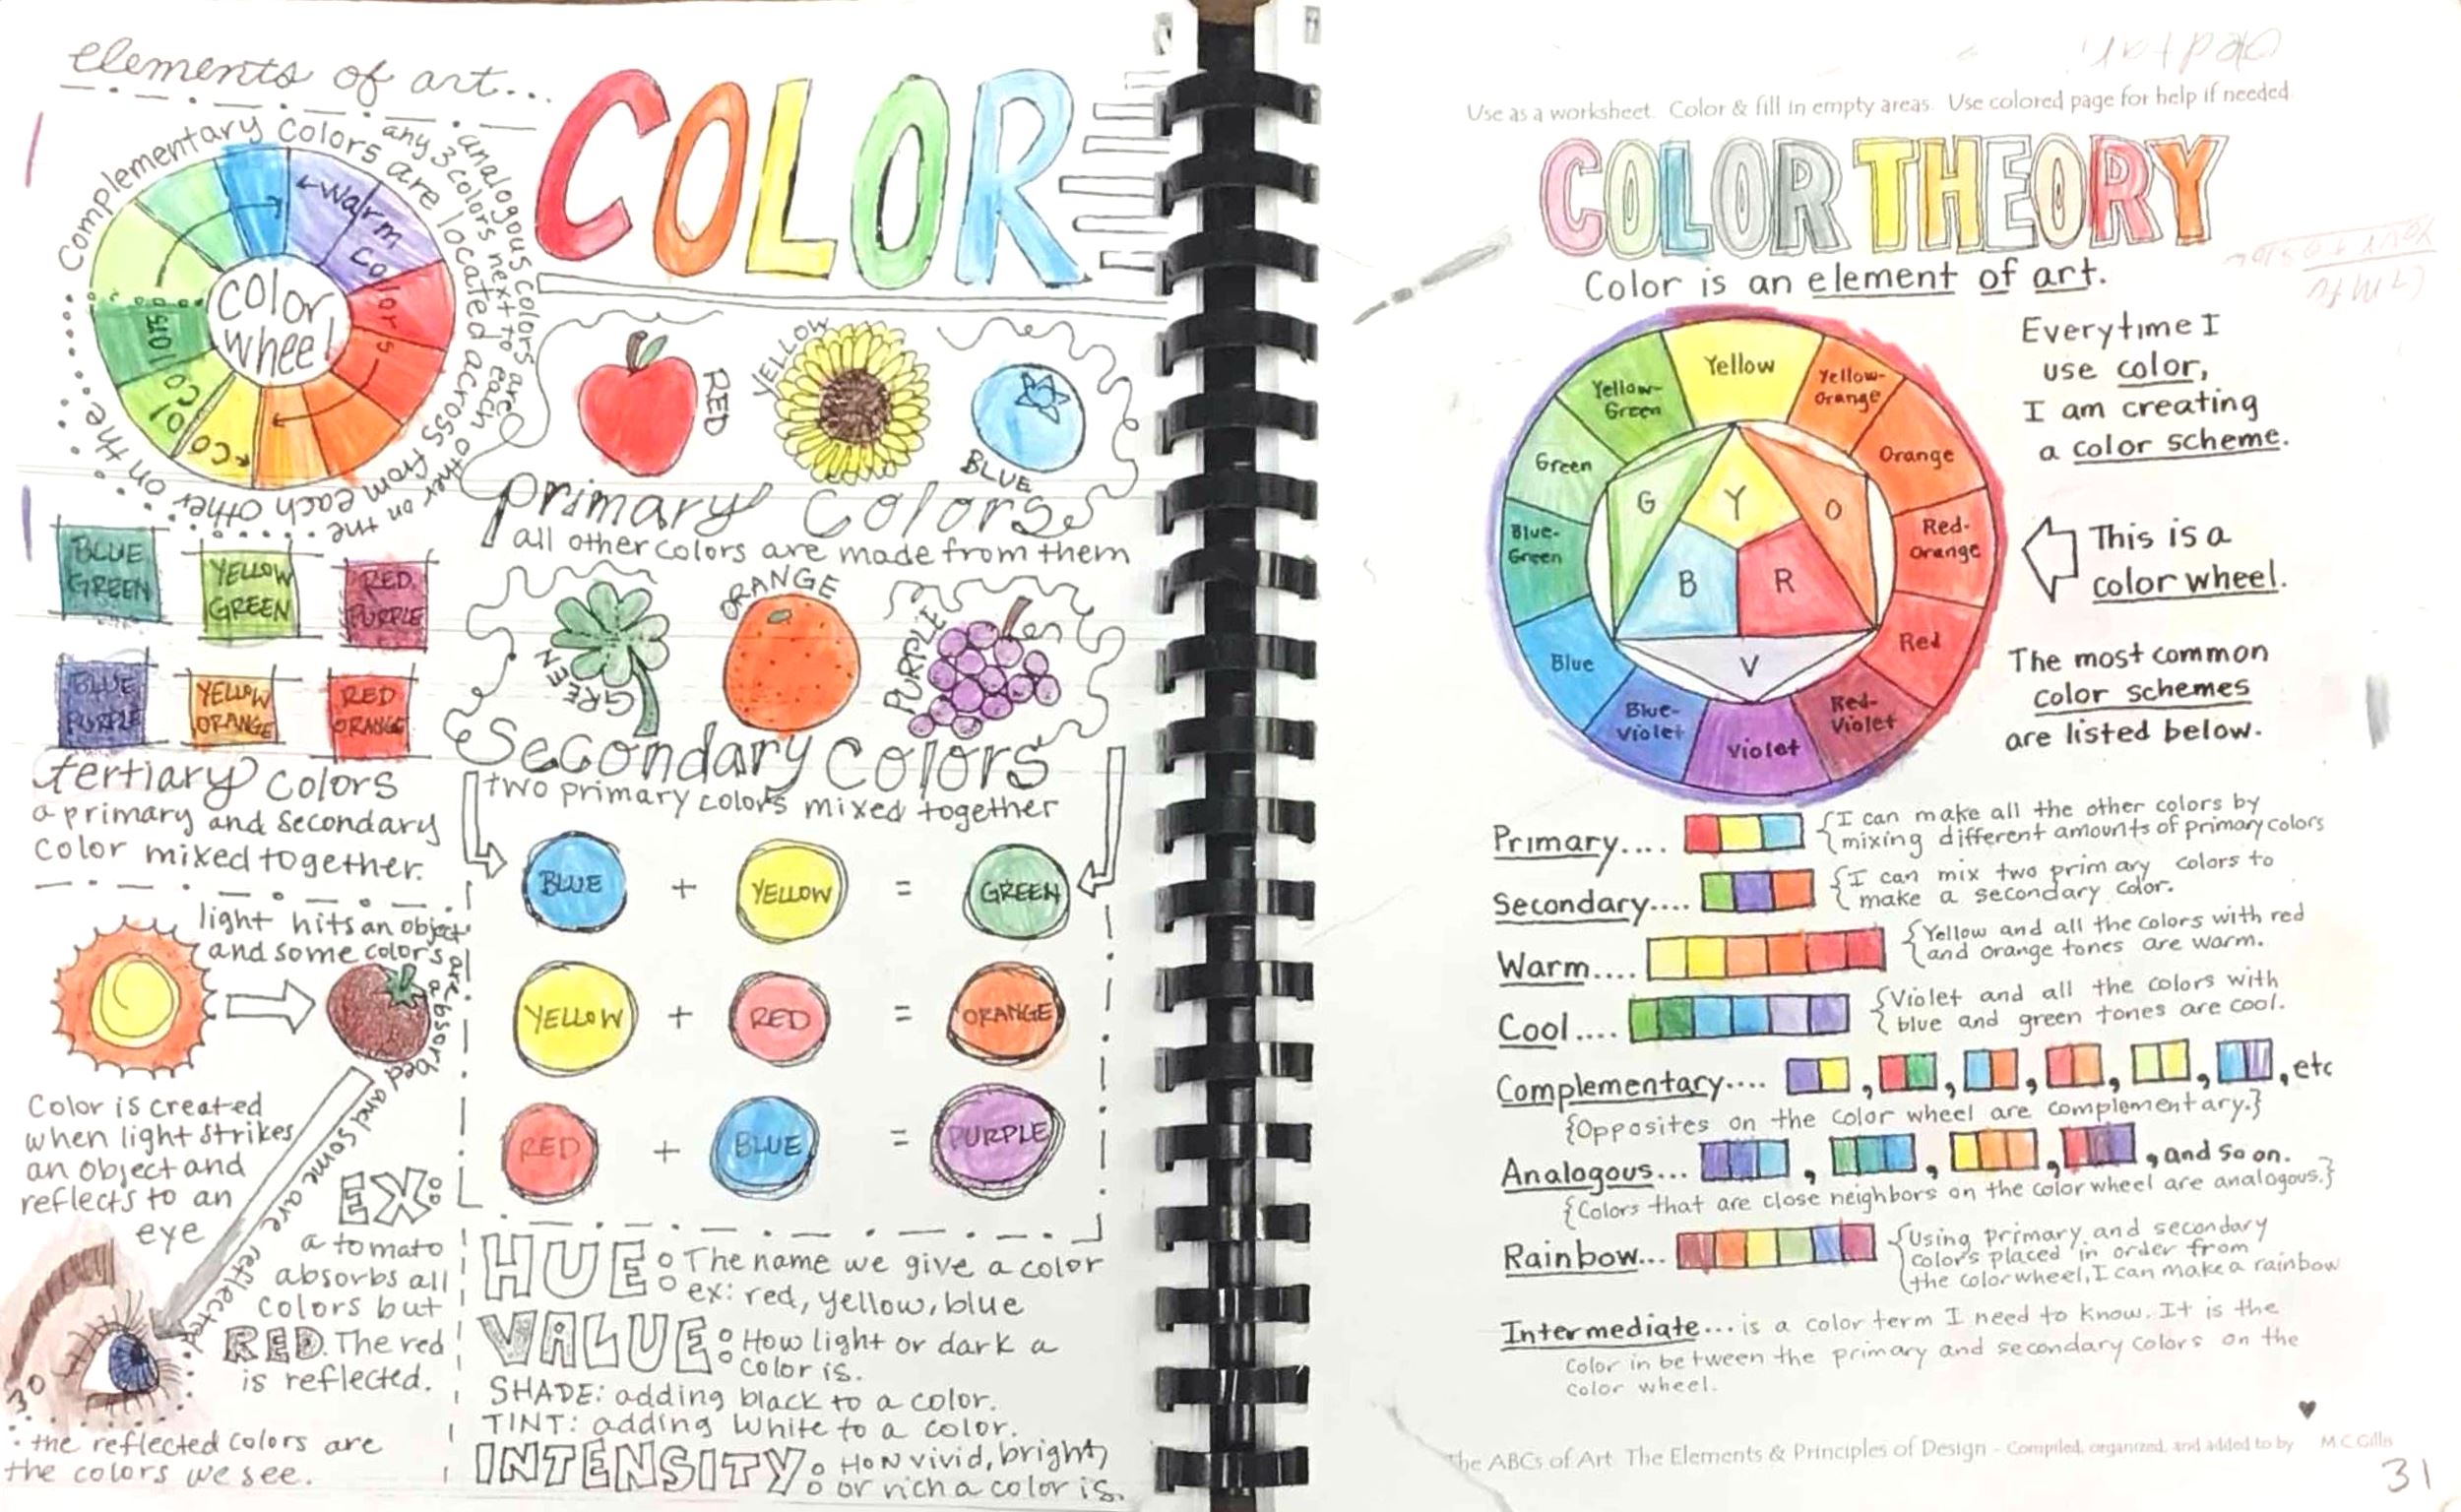 elements of art...
COLOR
Complementary colors are located across from each other on the
analogous colors are
any 3 colors next to each other on the
←Warm Colors
Cool Colors
color
wheel
RED
YELLOW
BLUE
primary Colors
all other colors are made from them
BLUE
GREEN
YELLOW
GREEN
RED
PURPLE
BLUE
PURPLE
YELLOW
ORANGE
RED
ORANGE
tertiary colors
a primary and secondary
color mixed together.
GREEN
ORANGE
PURPLE
Secondary colors
two primary colors mixed together
BLUE + YELLOW = GREEN
YELLOW + RED = ORANGE
RED + BLUE = PURPLE
light hits an object
and some colors are absorbed and some are reflected
Color is created
when light strikes
an object and
reflects to an
eye
EX:
a tomato
absorbs all
colors but
RED. The red
is reflected.
30
the reflected colors are
the colors we see.
HUE: The name we give a color
ex: red, yellow, blue
VALUE: How light or dark a
color is.
SHADE: adding black to a color.
TINT: adding white to a color.
INTENSITY: HoW vivid, bright,
or rich a color is.
Use as a worksheet. Color & fill in empty areas. Use colored page for help if needed.
COLOR THEORY
Color is an element of art.
Yellow
Yellow-
Orange
Orange
Red-
Orange
Red
Red-
Violet
Violet
Blue-
Violet
Blue
Blue-
Green
Green
Yellow-
Green
G
Y
O
B
R
V
Everytime I
use color,
I am creating
a color scheme.
This is a
color wheel.
The most common
color schemes
are listed below.
Primary.... {I can make all the other colors by
mixing different amounts of primary colors
Secondary.... {I can mix two primary colors to
make a secondary color.
Warm.... {Yellow and all the colors with red
and orange tones are warm.
Cool.... {Violet and all the colors with
blue and green tones are cool.
Complementary.... , , , , , , etc
{Opposites on the color wheel are complementary.}
Analogous... , , , , and so on.
{Colors that are close neighbors on the color wheel are analogous.}
Rainbow... {Using primary and secondary
colors placed in order from
the color wheel, I can make a rainbow
Intermediate... is a color term I need to know. It is the
color in between the primary and secondary colors on the
color wheel.
The ABCs of Art The Elements & Principles of Design - Compiled, organized, and added to by M C Gillis
31